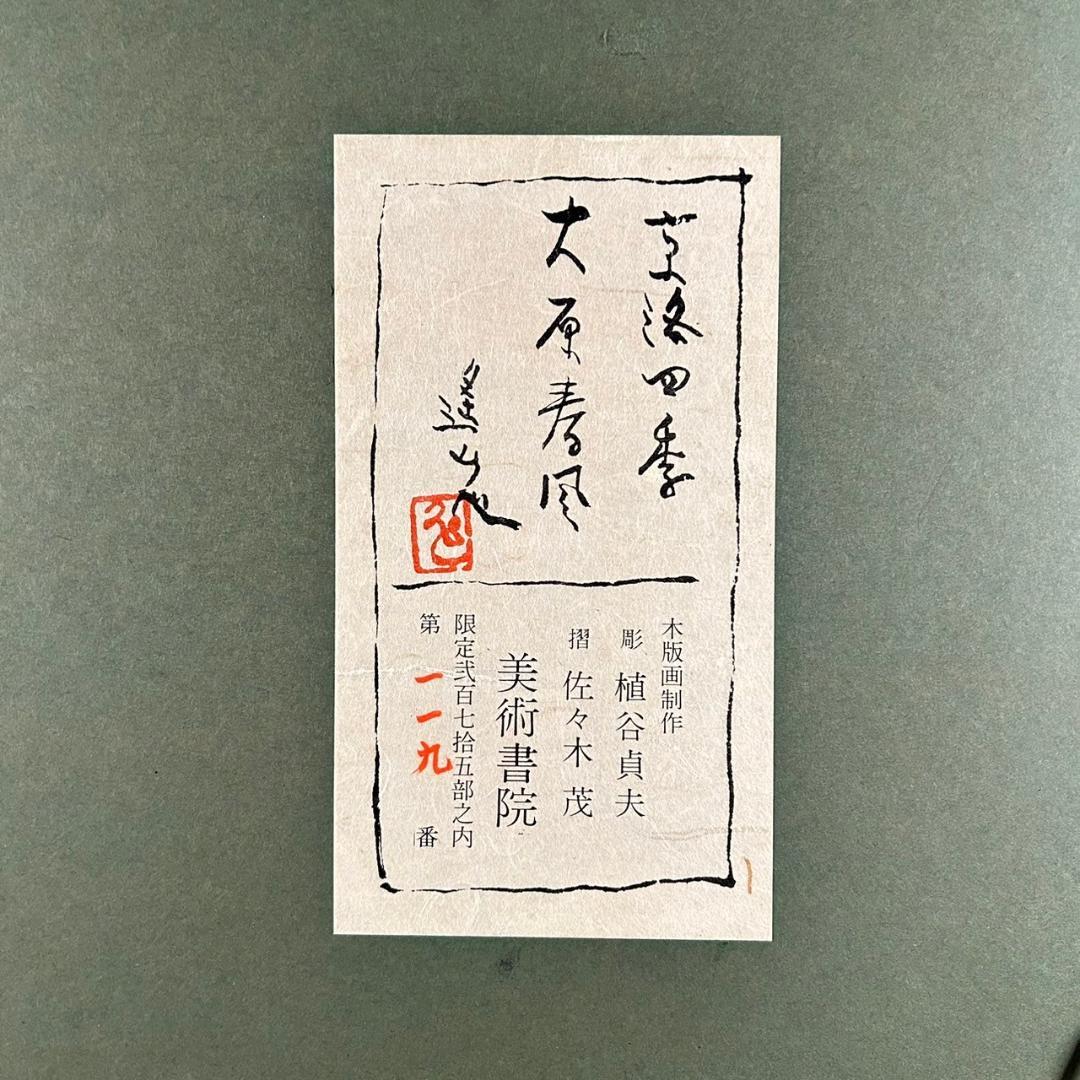 京洛四季
大原春風
木版画制作
彫 植谷貞夫
摺 佐々木 茂
美術書院
限定弐百七拾五部之内
第 一一九 番